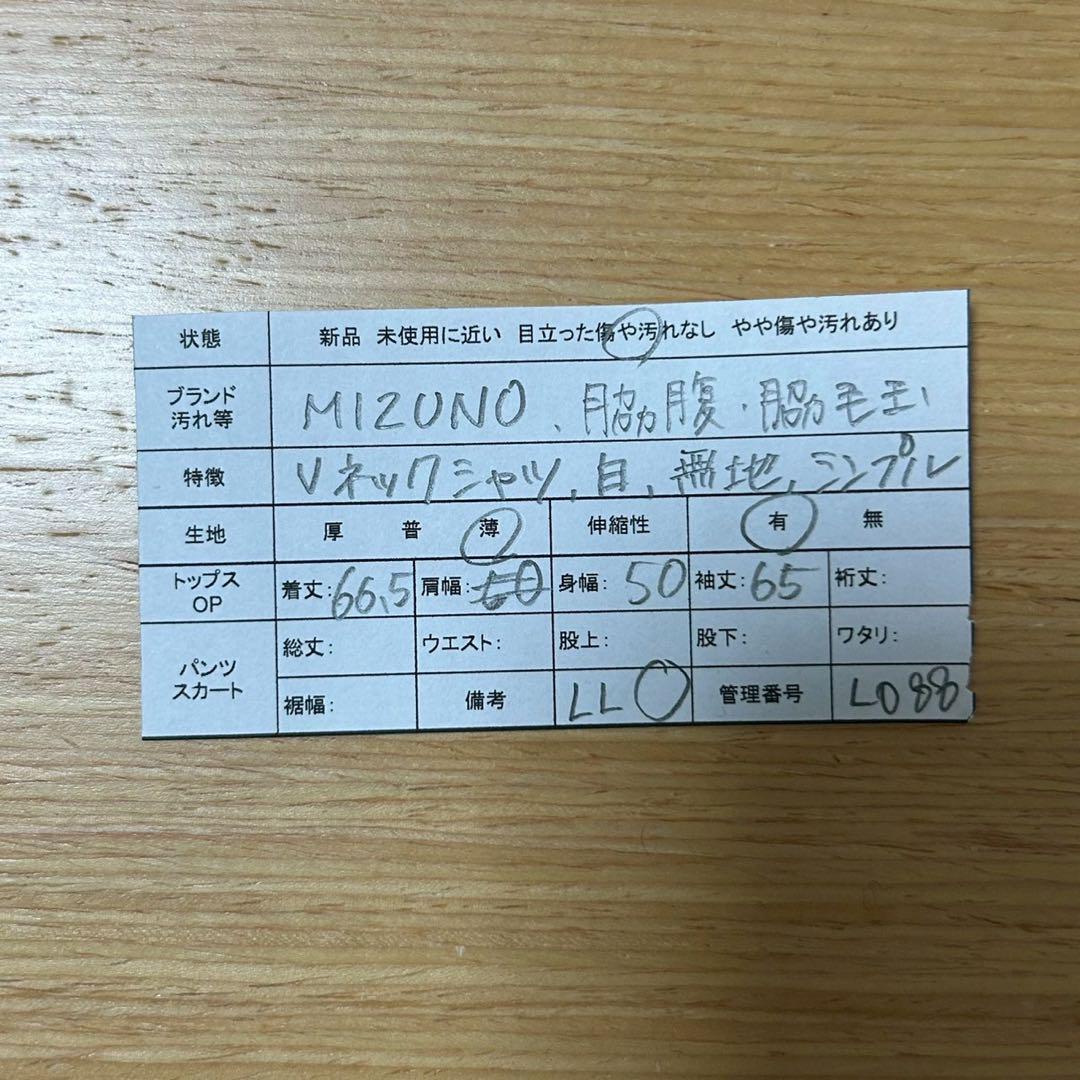 状態 新品 未使用に近い 目立った傷や汚れなし やや傷や汚れあり
ブランド
汚れ等 MIZUNO、脇腹・脇毛玉
特徴 Vネックシャツ、白、無地、シンプル
生地 厚 普 薄 伸縮性 有 無
トップス
OP 着丈:66.5 肩幅:50 身幅:50 袖丈:65 裄丈:
パンツ
スカート 総丈: ウエスト: 股上: 股下: ワタリ:
裾幅: 備考 LL 管理番号 L088